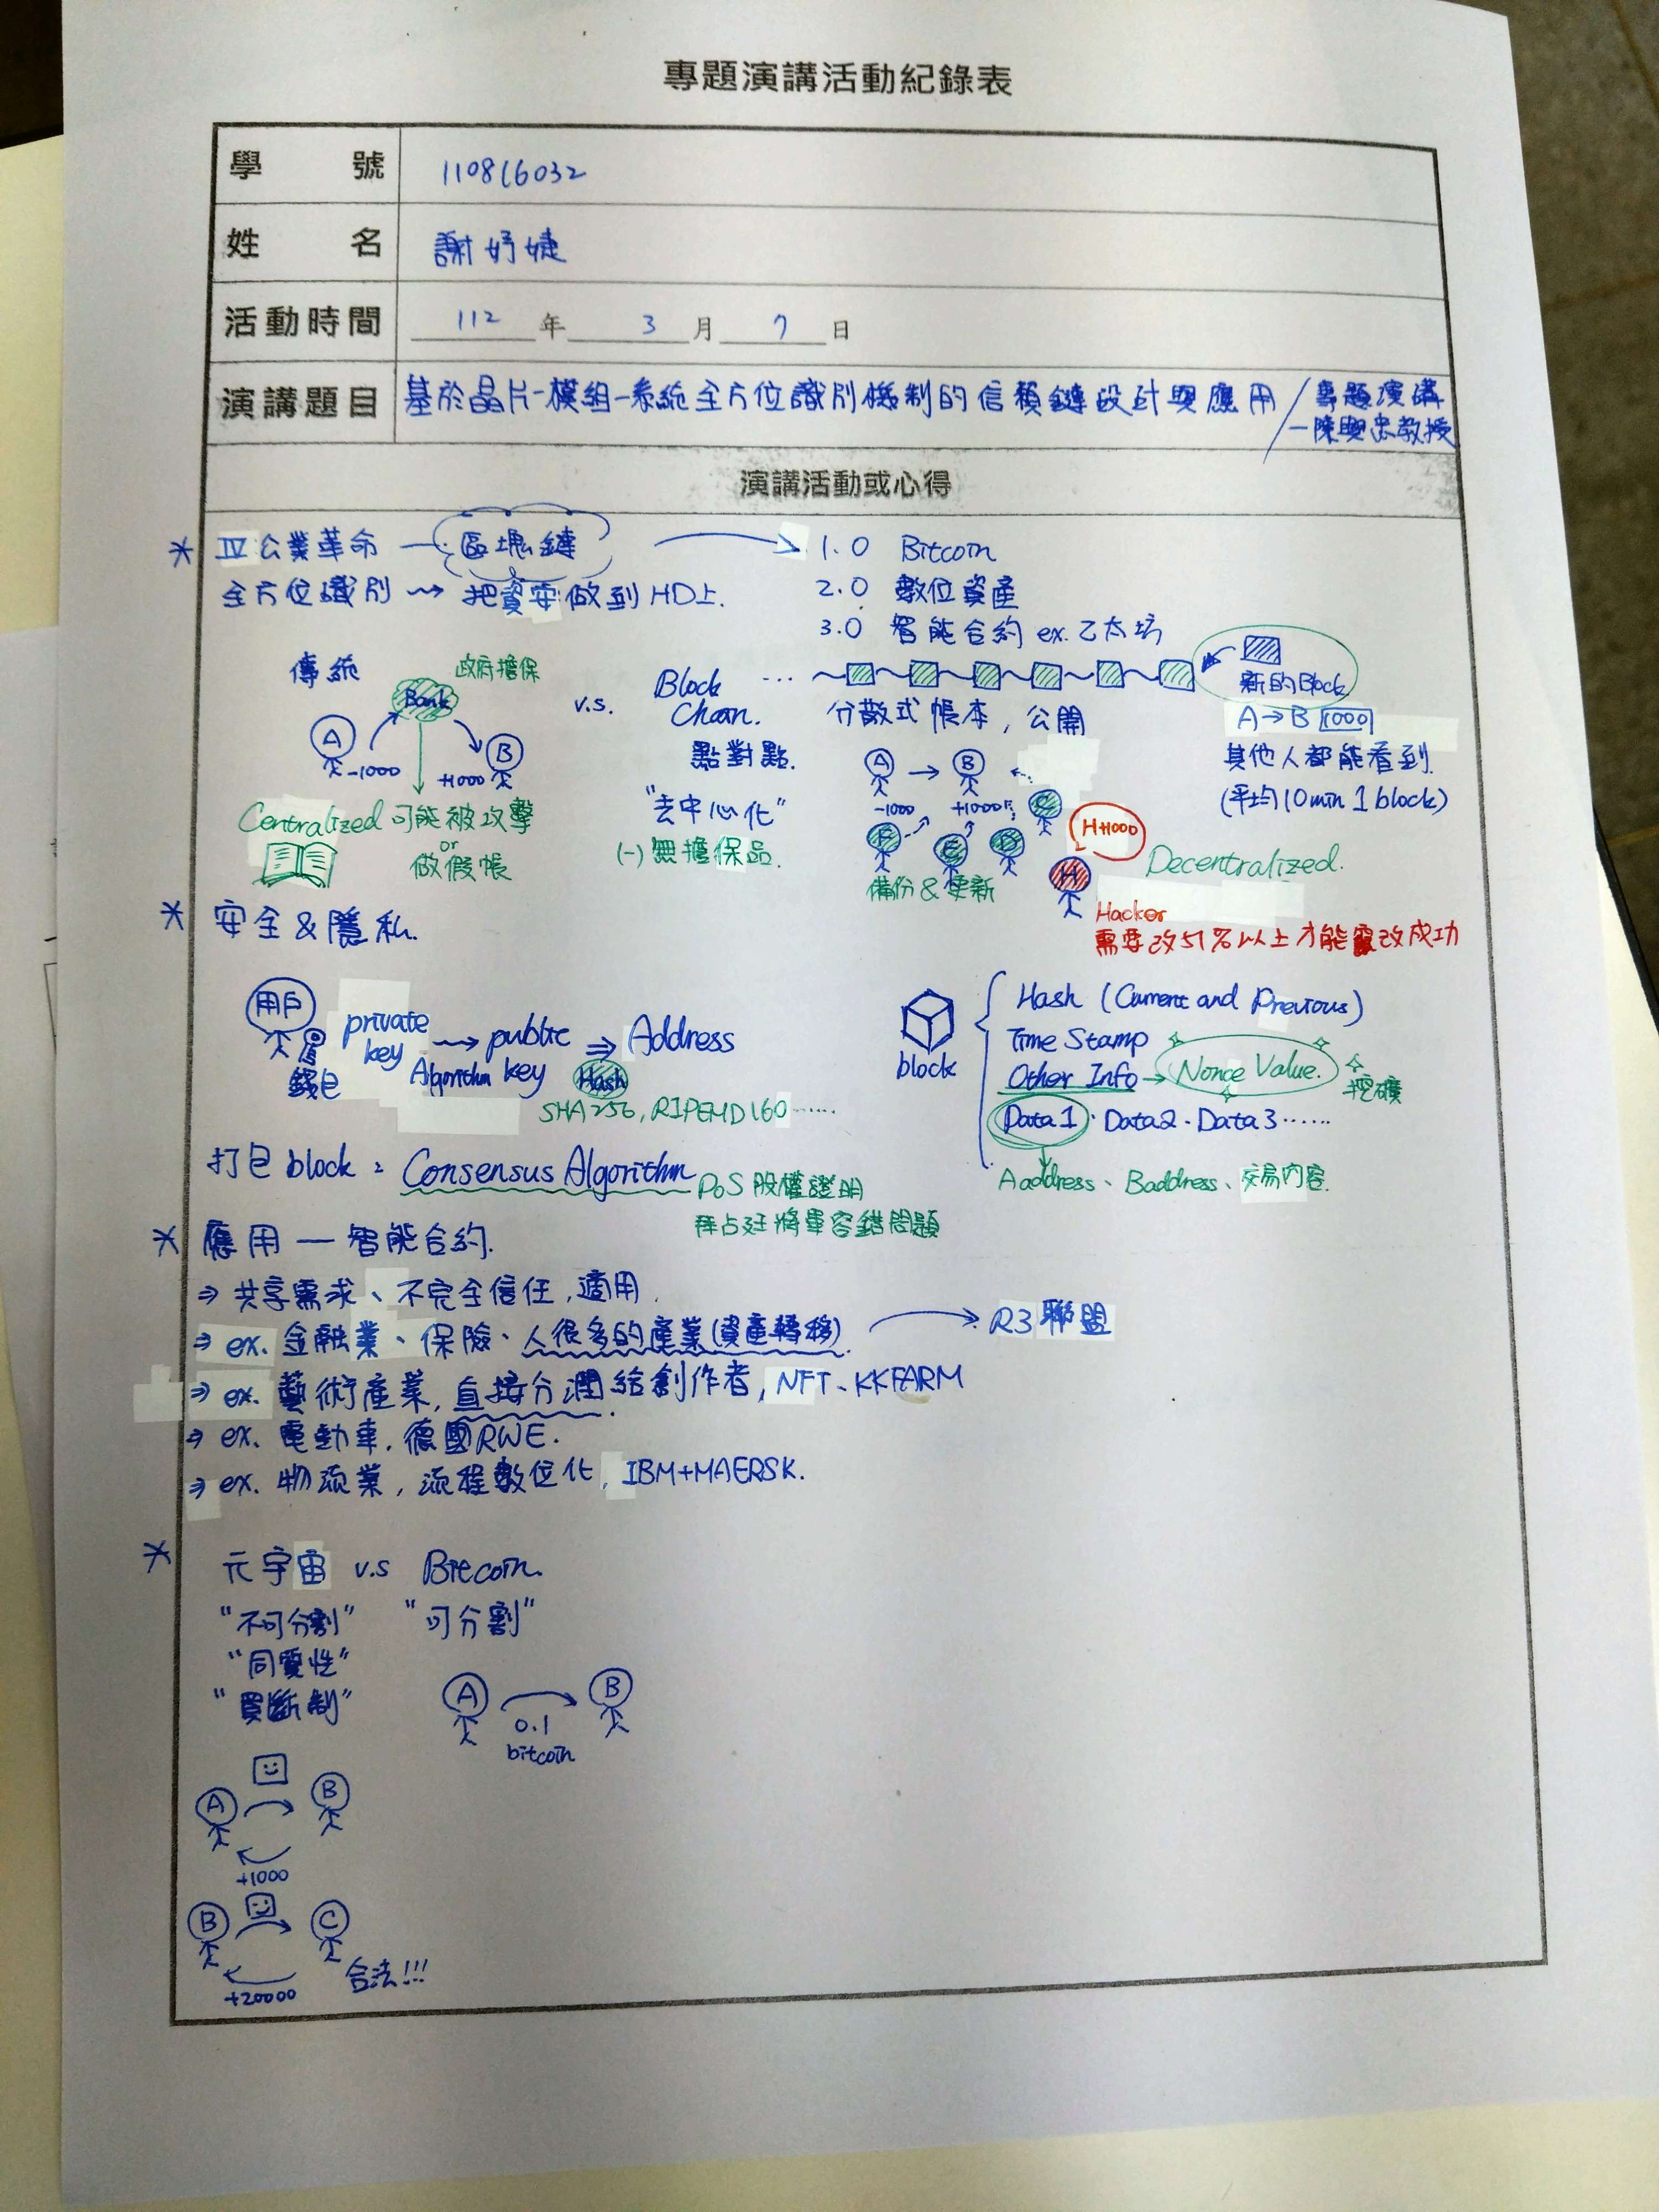 專題演講活動紀錄表
學號 110816032
姓名 謝妤婕
活動時間 112 年 3 月 7 日
演講題目 基於晶片-模組-系統全方位識別機制的信賴鏈設計與應用 / 專題演講
-陳興忠教授
演講活動或心得
* IV 公業革命 — 區塊鏈 1.0 Bitcoin
全方位識別 把資安做到HD上. 2.0 數位資產
3.0 智能合約 ex. 乙太坊
傳統
Bank
政府擔保
A
-1000
+1000
B
Centralized 可能被攻擊
or
做假帳
v.s.
Block
Chain.
點對點.
"去中心化"
(-) 無擔保品.
...
新的Block
分散式帳本, 公開
A→B 1000
其他人都能看到.
(平均10min 1 block)
A → B
-1000 +1000
C
F E D
備份 & 更新
H+1000
H
Decentralized.
Hacker
需要改51%以上才能竄改成功
* 安全 & 隱私.
用戶
錢包
private
key
Algorithm
public
key
⇒ Address
Hash
SHA256, RIPEMD160......
block
Hash (Current and Previous)
Time Stamp
Other Info → Nonce Value. 挖礦
Data1 · Data2 · Data3......
Aaddress、Baddress、交易內容.
打包block: Consensus Algorithm PoS 股權證明
拜占廷將軍容錯問題
* 應用 — 智能合約.
⇒ 共享需求、不完全信任, 適用.
⇒ ex. 金融業、保險、人很多的產業(資產轉移). → R3聯盟
⇒ ex. 藝術產業, 直接分潤給創作者, NFT、KKFARM
⇒ ex. 電動車, 德國RWE.
⇒ ex. 物流業, 流程數位化, IBM+MAERSK.
* 元宇宙 v.s Bitcoin.
"不可分割" "可分割"
"同質性"
"買斷制"
A B
0.1
bitcoin
A B
+1000
B C
+20000
合法!!!